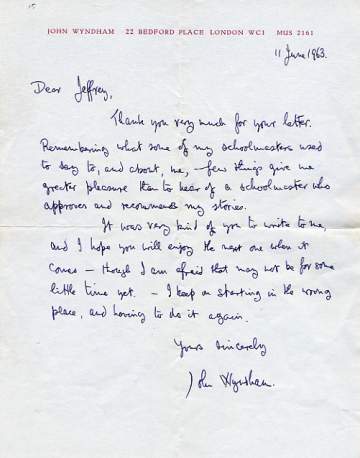 JOHN WYNDHAM · 22 BEDFORD PLACE LONDON WC1 MUS 2161
11 June 1963.
Dear Jeffrey,
Thank you very much for your letter.
Remembering what some of my schoolmasters used
to say to, and about, me, – few things give me
greater pleasure than to hear of a schoolmaster who
approves and recommends my stories.
It was very kind of you to write to me,
and I hope you will enjoy the next one when it
comes – though I am afraid that may not be for some
little time yet. – I keep on starting in the wrong
place, and having to do it again.
Yours sincerely
John Wyndham.